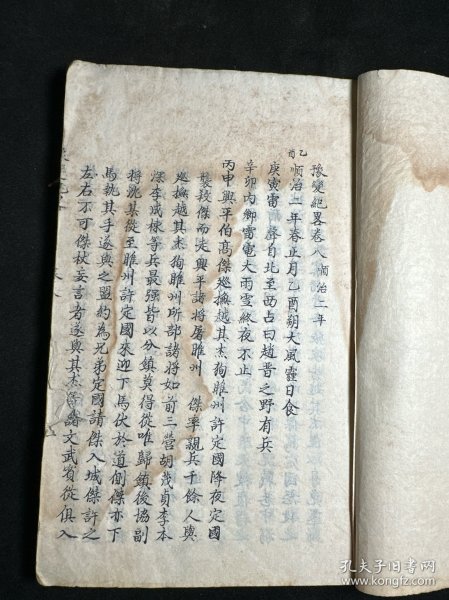 豫變紀畧卷八 順治二年
乙酉
順治二年春正月乙酉朔大風霾日食
庚寅雷聲自北至西占曰趙晋之野有兵
辛卯內鄉雷電大雨雪終夜不止
丙申興平伯高傑廵撫越其杰狥睢州許定國降夜定國
襲殺傑而走興平諸將屠睢州 傑率親兵千餘人與
廵撫越其杰狥睢州所部諸將如前三營胡茂貞李本
深李成棟等兵最强皆以分鎮莫得從唯歸鎮後協副
將沈某從至睢州許定國來迎下馬伏於道側傑亦下
馬執其手遂與之盟約為兄弟定國請傑入城傑許之
左右不可傑杖妄言者遂與其杰 文武賓從俱入
孔夫子旧书网
www.kongfz.com